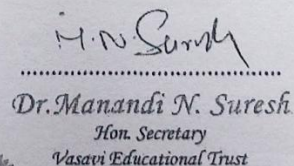 M.N. Suresh
Dr.Manandi N. Suresh
Hon. Secretary
Vasavi Educational Trust